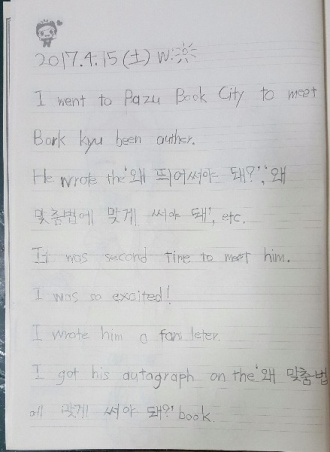 2017.4.15(土) W:☀
I went to Pazu Book City to meet
Bark kyu been auther.
He wrote the '왜 띄어써야 돼?', '왜
맞춤법에 맞게 써야 돼', etc.
It was second time to meet him.
I was so excited!
I wrote him a fan leter.
I got his autagraph on the '왜 맞춤법
에 맞게 써야 돼?' book.